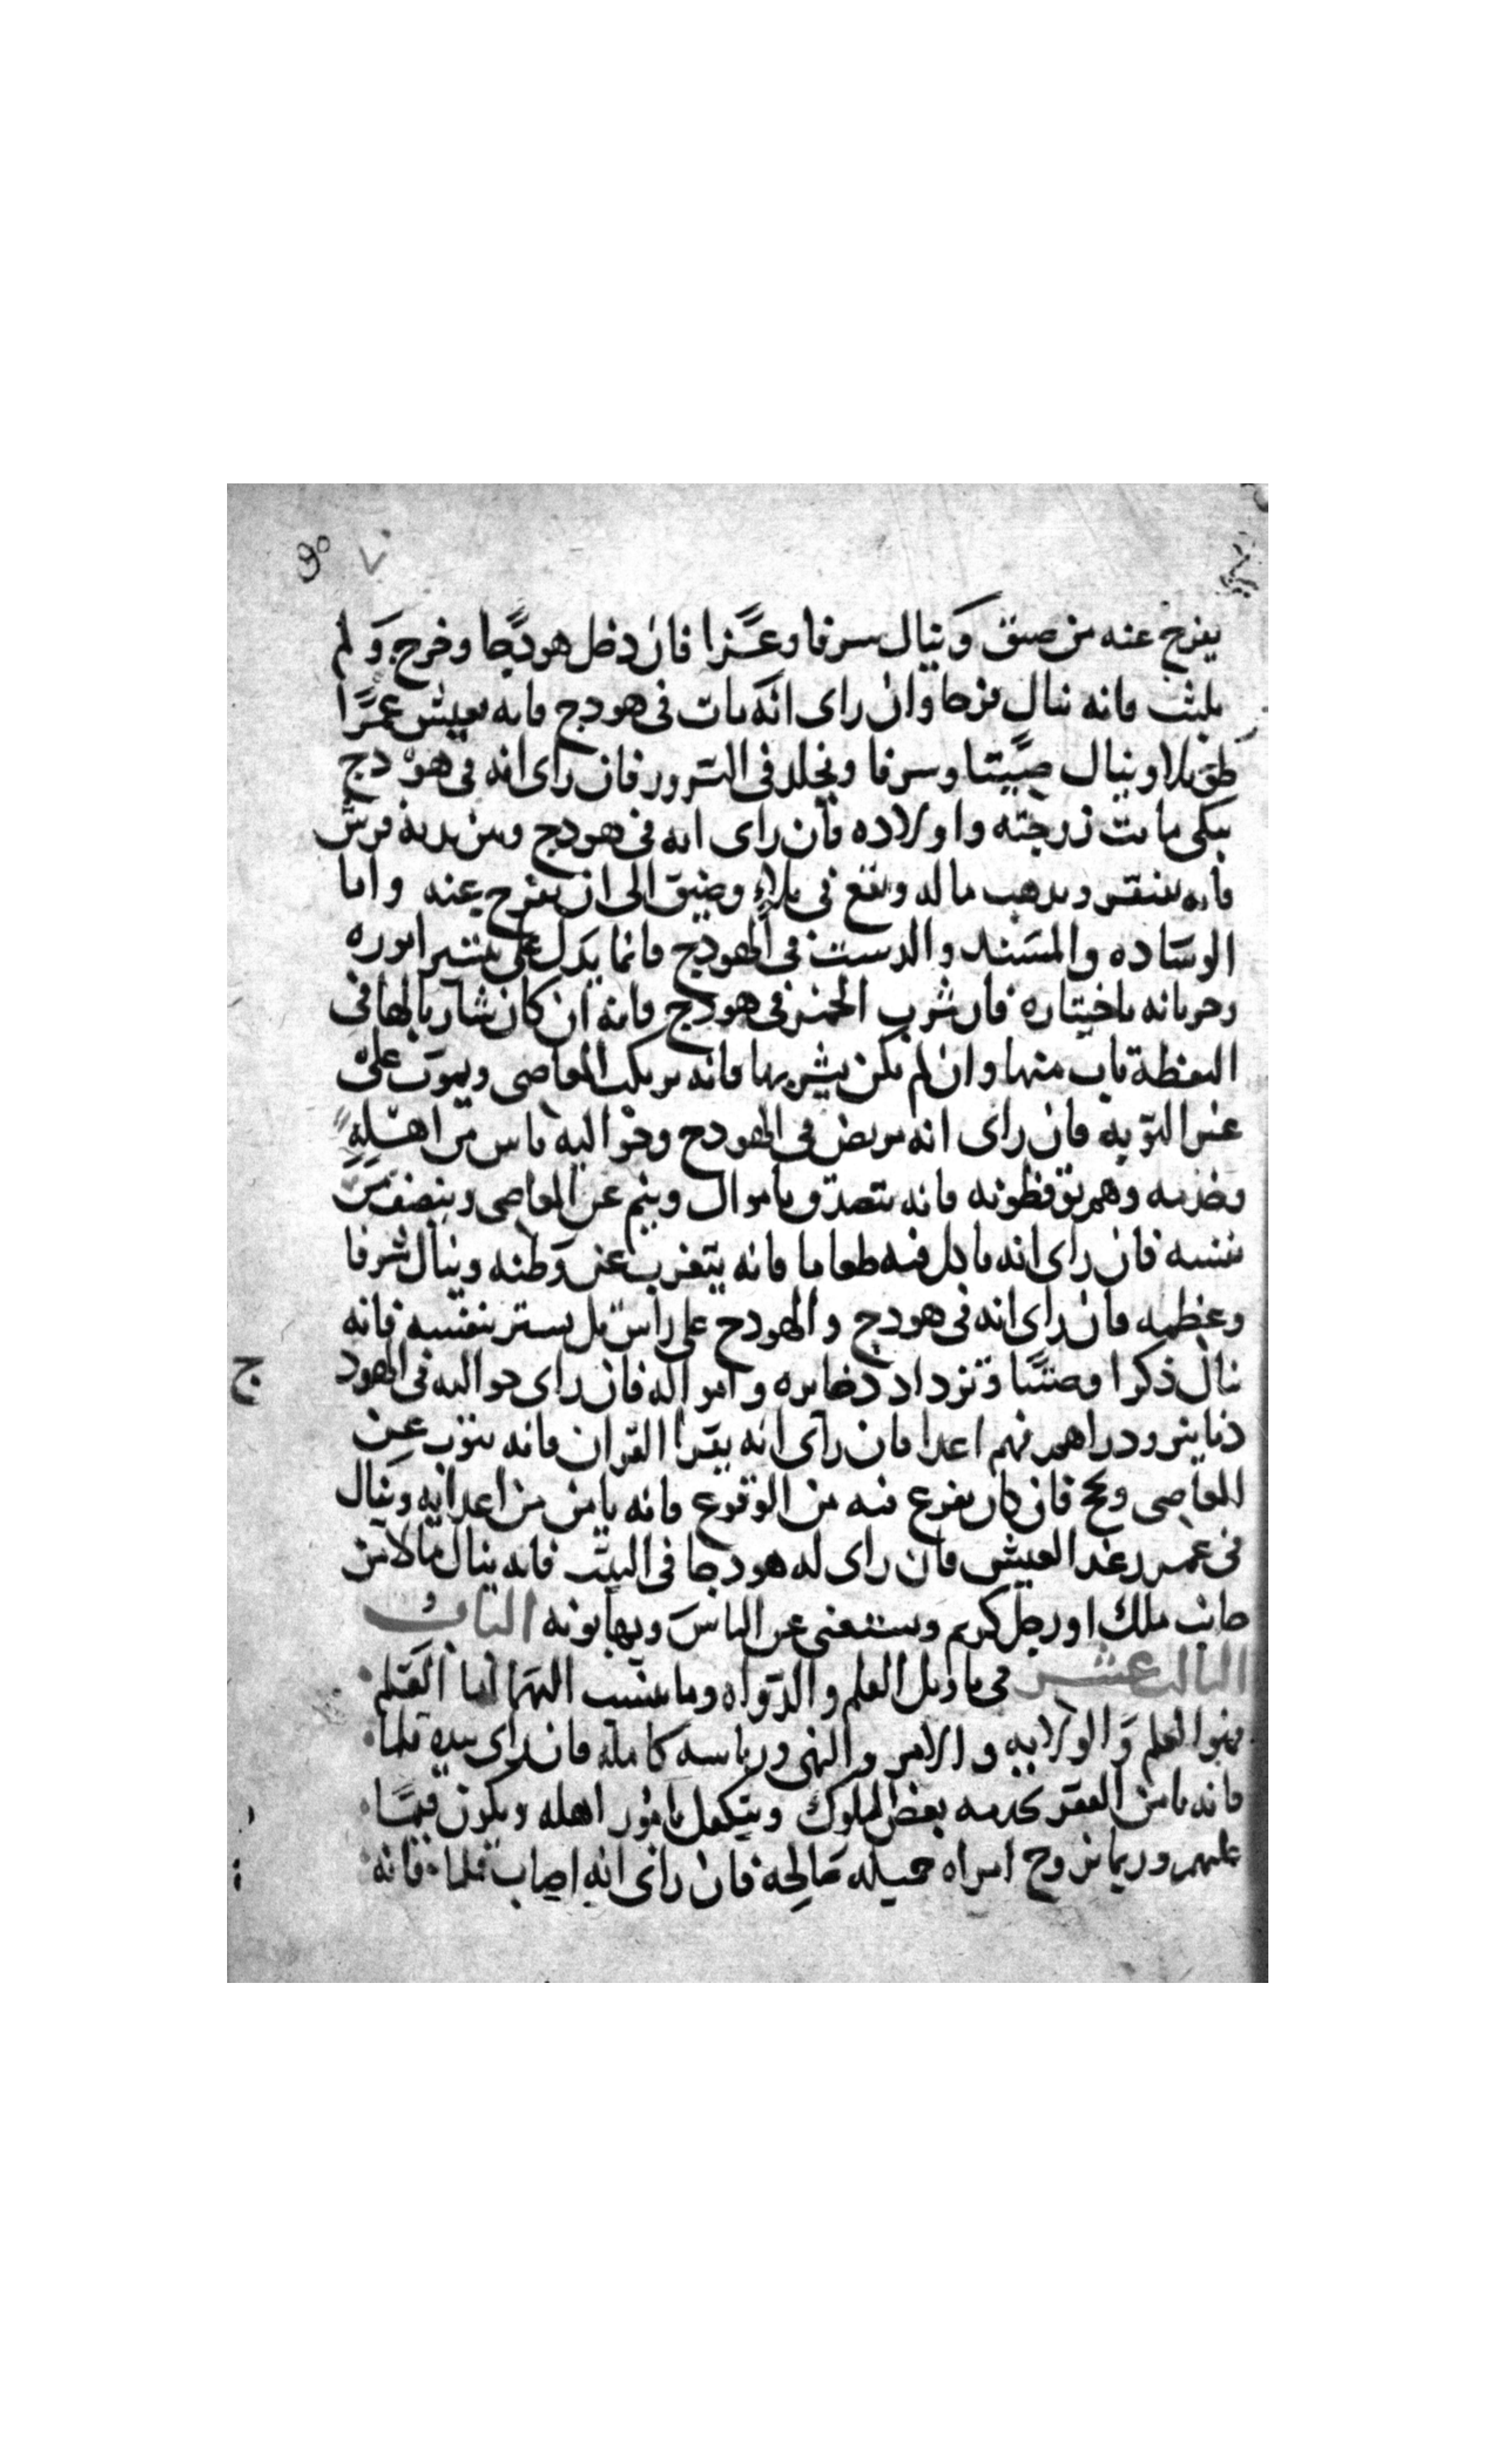 يفرج عنه من ضيق وينال سرفا وعزا فان دخل هودجا وخرج ولم
يلبث فانه ينال فرحا وان راى انه مات في هودج فانه يعيش عمرا
طويلا وينال صيتا وسرفا ويخلد في السرور فان راى انه في هودج
يبكي ماتت زوجته واولاده فان راى انه في هودج وبين يديه فرش
فانه يفتقر ويذهب ماله ويقع في بلاء وضيق الى ان يفرج عنه واما
الوساده والمسند والدست في الهودج فانما يدل على تيسير اموره
وجريانه باختياره فان شرب الخمر في هودج فانه ان كان شاربا لها في
اليقظة تاب منها وان لم يكن يشربها فانه يرتكب المعاصي ويموت على
غير التوبه فان راى انه مريض في الهودج وحواليه ناس من اهله
وخدمه وهم يوقظونه فانه يتصدق باموال وينم عن المعاصي وينصف من
نفسه فان راى انه ياكل فيه طعاما فانه يتغرب عن وطنه وينال شرفا
وعظمه فان راى انه في هودج والهودج على راس تل يستر بنفسه فانه
ينال ذكرا وصيتا وتزداد دخايره وامواله فان راى حواليه في الهود ج
دنانير ودراهم فهم اعدا فان راى انه يقرا القران فانه يتوب عن
المعاصي ويحج فان كان يفزع فيه من الوقوع فانه يامن من اعدايه وينال
في عمر رغد العيش فان راى له هودجا في البيت فانه ينال مالا من
جانب ملك او رجل كريم ويستغني عن الناس ويهابونه الباب
الثالث عشر في تاويل القلم والدواه وما ينسب اليهما اما القلم
فهو العلم والولايه والامر والنهي ورياسه كامله فان راى بيده قلما
فانه يامن الفقر بخدمه بعض الملوك ويتكفل بامور اهله ويكون قيما
عليهم وربما تزوج امراه جميله صالحه فان راى انه اصاب قلما فانه